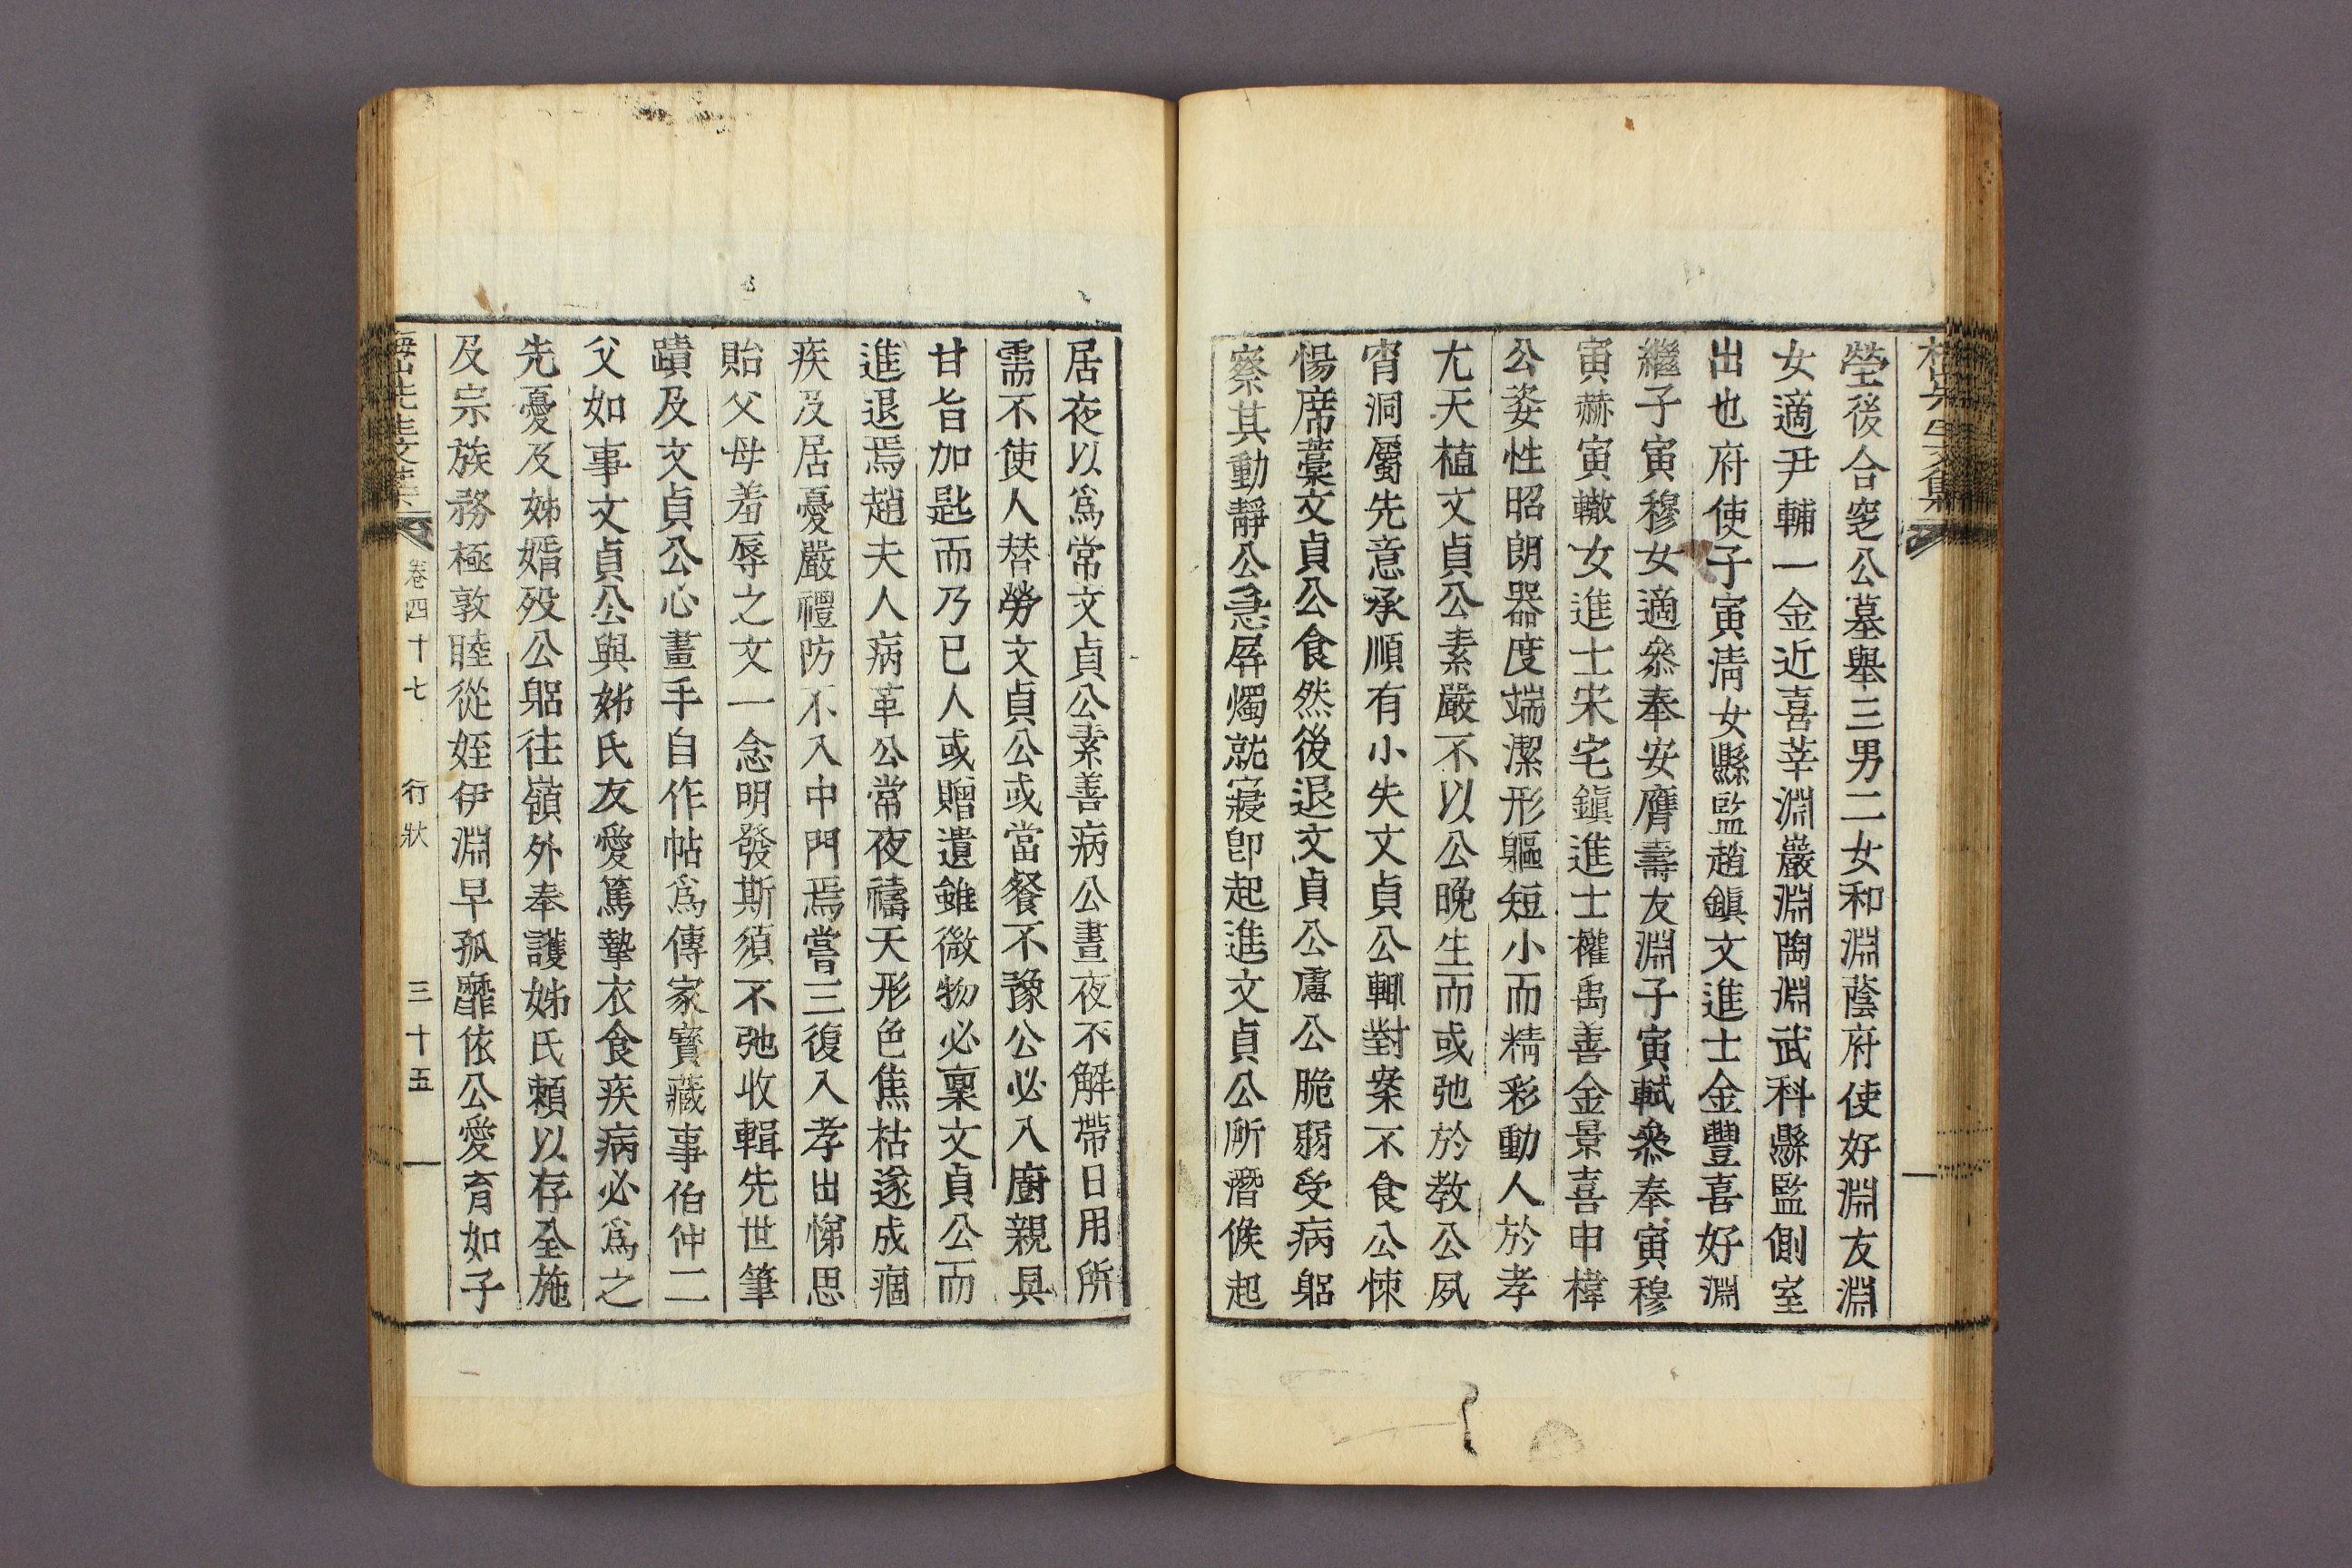 塋後合窆公墓舉三男二女和淵蔭府使好淵友淵
女適尹輔一金近喜莘淵巖淵陶淵武科縣監側室
出也府使子寅淸女縣監趙鎭文進士金豐喜好淵
繼子寅穆女適叅奉安膺壽友淵子寅軾叅奉寅穆
寅赫寅轍女進士宋宅鎭進士權禹善金景喜申樟
公姿性昭朗器度端潔形軀短小而精彩動人於孝
尤天植文貞公素嚴不以公晩生而或弛於教公夙
宵洞屬先意承順有小失文貞公輒對案不食公悚
惕席藁文貞公食然後退文貞公慮公脆弱受病躬
察其動靜公急屛燭就寢卽起進文貞公所潛候起
居夜以爲常文貞公素善病公晝夜不解帶日用所
需不使人替勞文貞公或當餐不豫公必入廚親具
甘旨加匙而乃已人或贈遺雖微物必稟文貞公而
進退焉趙夫人病革公常夜禱天形色焦枯遂成痼
疾及居憂嚴禮防不入中門焉嘗三復入孝出悌思
貽父母羞辱之文一念明發斯須不弛收輯先世筆
蹟及文貞公心畫手自作帖爲傳家寶藏事伯仲二
父如事文貞公與姊氏友愛篤摯衣食疾病必爲之
先憂及姊婿歿公躬往嶺外奉護姊氏賴以存全施
及宗族務極敦睦從姪伊淵早孤靡依公愛育如子
卷四十七 行狀 三十五